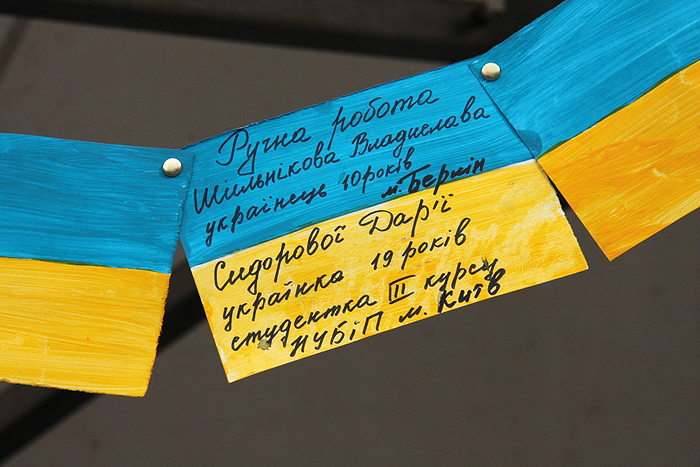 Ручна робота
Шильнікова Владислава
українець 10 років
м. Берлін
Сидорової Дарії
українка 19 років
студентка II курсу
НУБіП м. Київ